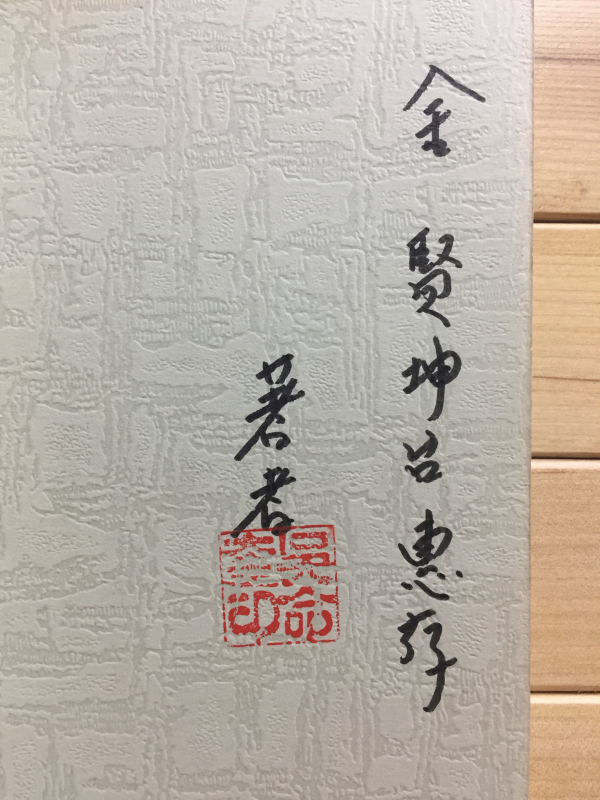 金 賢坤台 惠存
著者